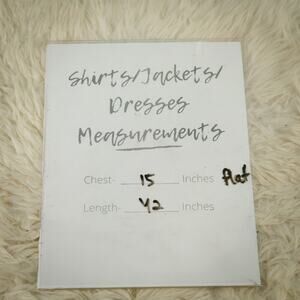 Shirts/Jackets/
Dresses
Measurements
Chest- 15 Inches flat
Length- 42 Inches